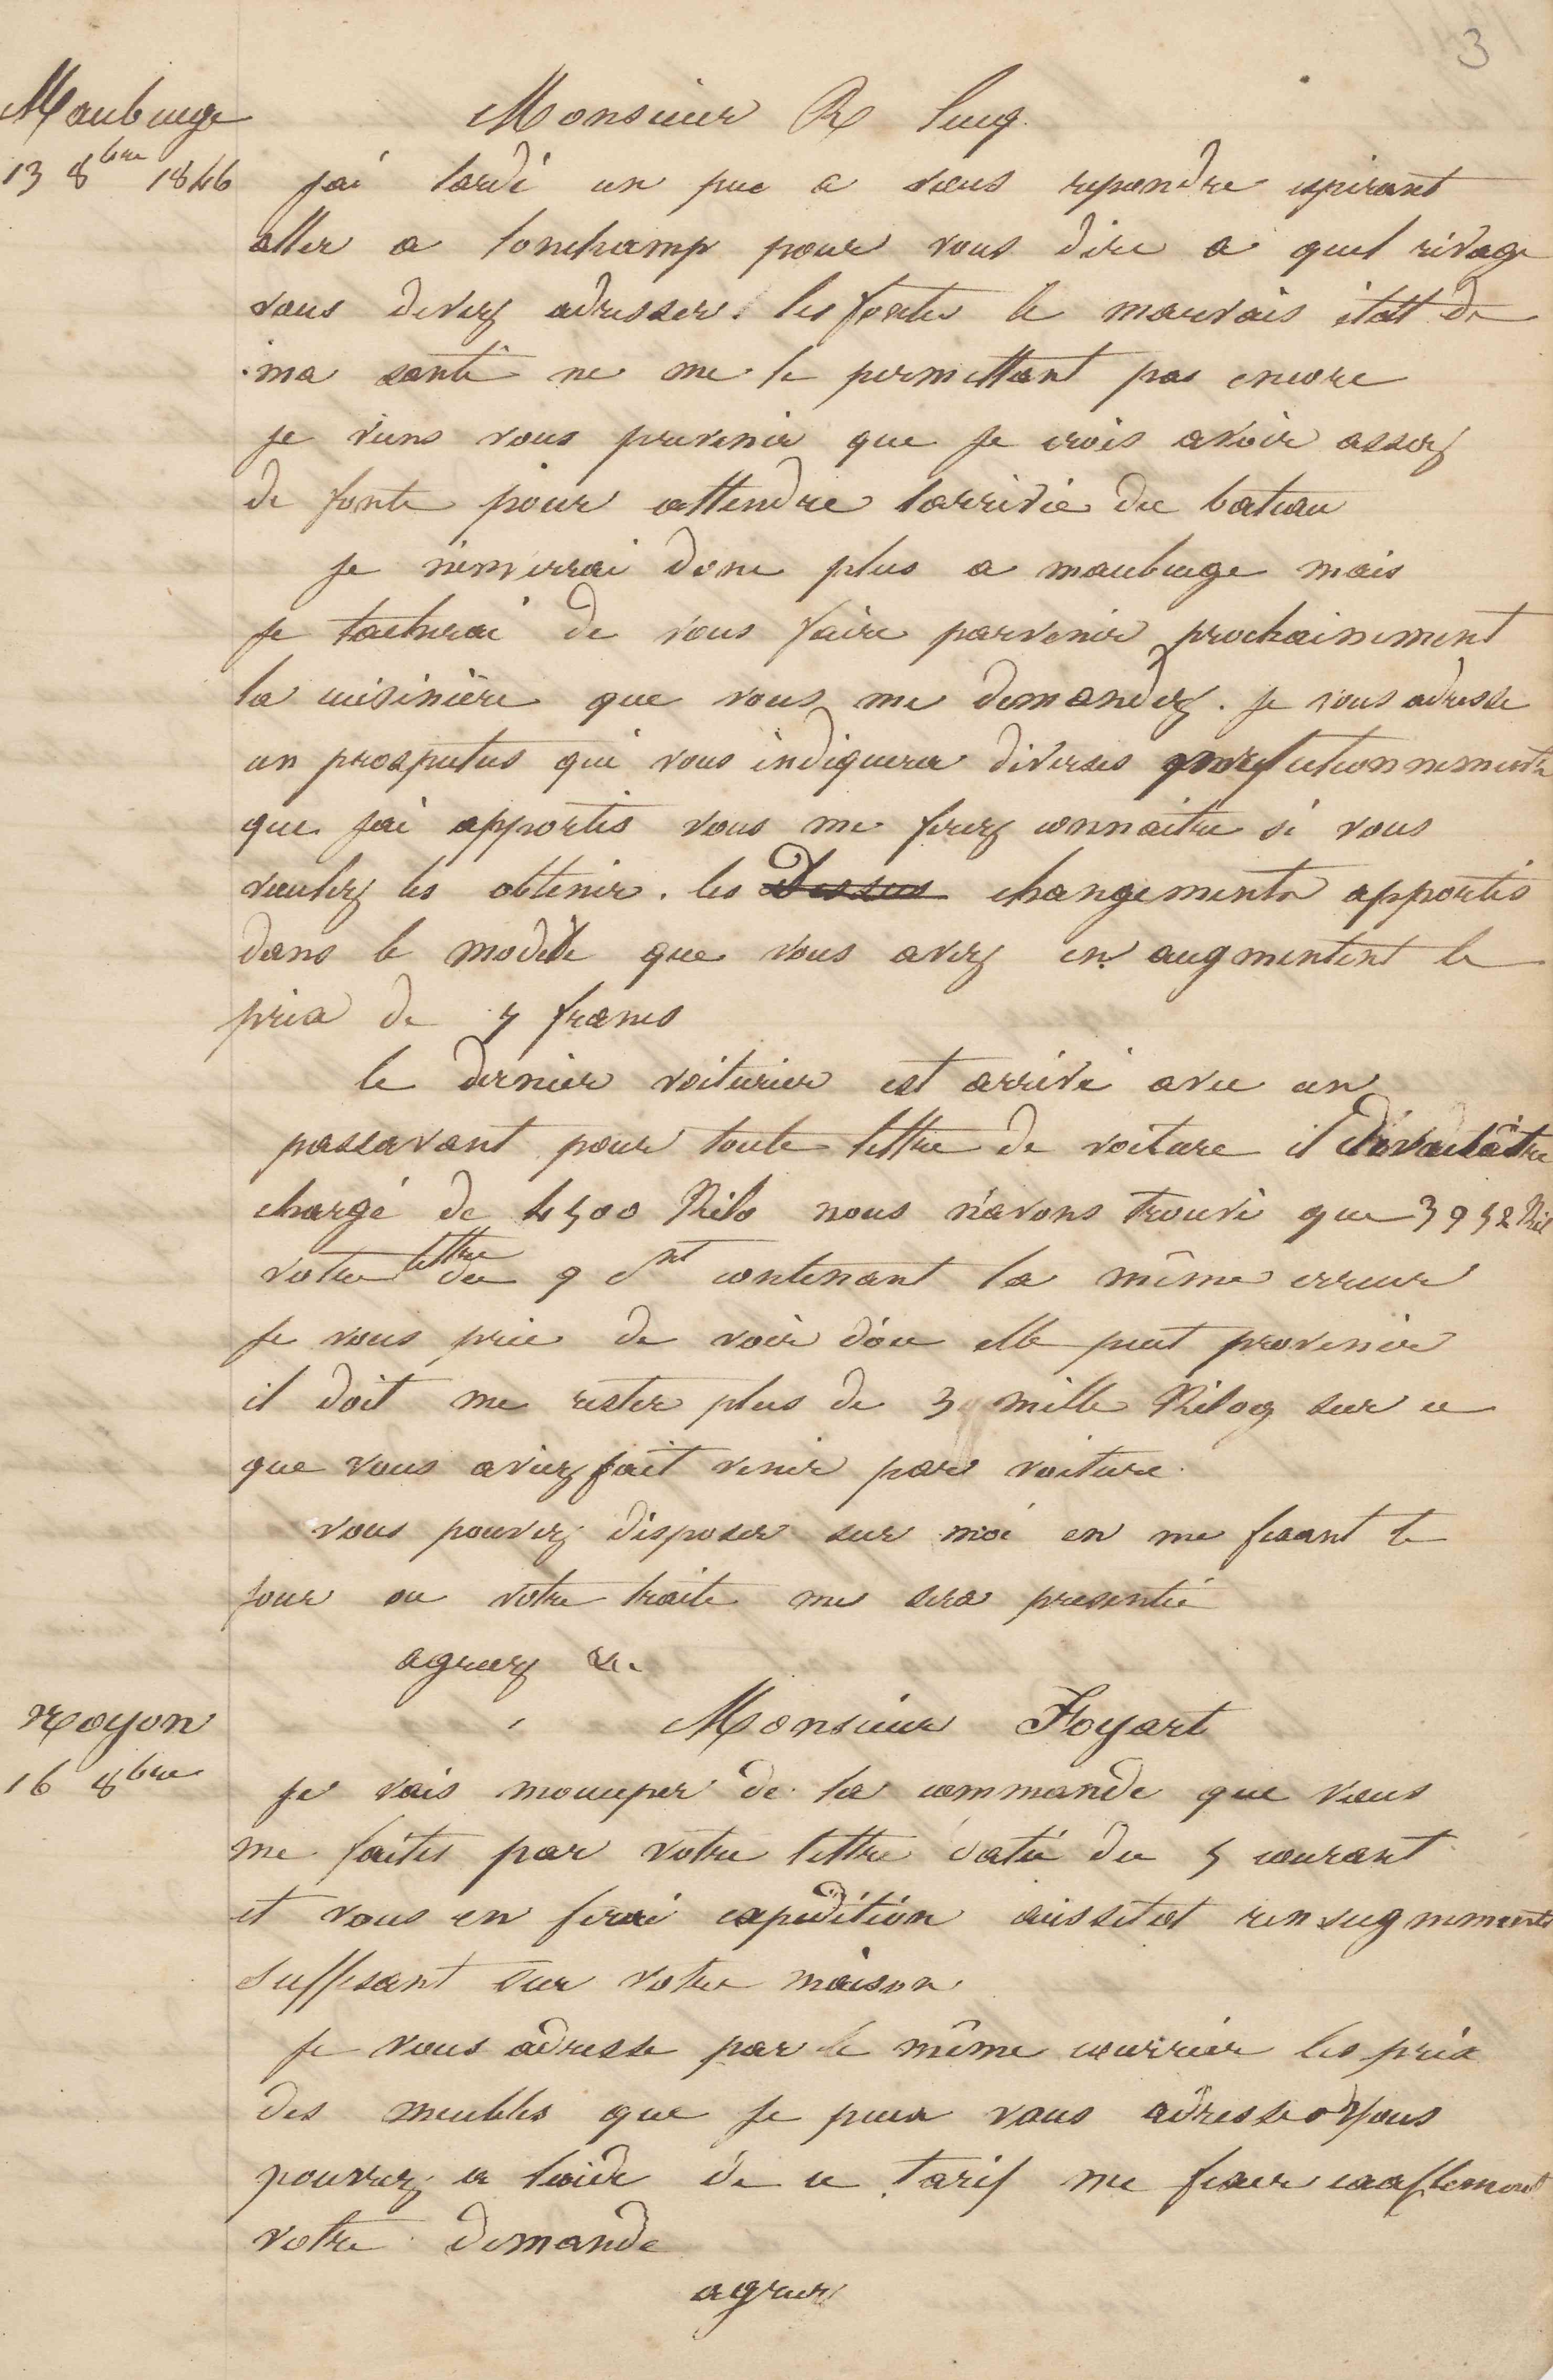 3
Maubeuge
13 8bre 1846
Monsieur R Sucq.
jai tardé un peu a vous repondre esperant
aller a lonchamp pour vous dire a quel rivage
vous devez adresser les fontes le mauvais état de
ma santé ne me le permettant pas encore
je viens vous prevenir que je crois avoir assez
de fonte pour attendre larrivée du bateau
je n'enverrai donc plus a maubeuge mais
je tacherai de vous faire parvenir prochainement
la cuisinière que vous me demandez. je vous adresse
un prospectus qui vous indiquera diverses perfectionnements
que jai apportés vous me ferez connaitre si vous
voulez les obtenir. les Dessus changements apportés
dans le modele que vous avez en augmentent le
prix de 5 francs
le dernier voiturier est arrivé avec un
passavant pour toute lettre de voiture il devait être
chargé de 4500 Kilo nous n'avons trouvé que 3952 Kil
votre lettre du 9 ct contenant la même erreur
je vous prie de voir d'ou elle peut provenir
il doit me rester plus de 3 mille Kilog sur ce
que vous aviez fait venir par voiture
vous pouvez disposer sur moi en me fixant le
jour ou votre traite me sera presentée
agreez &.
Noyon
16 8bre
Monsieur Foyart
je vais moccuper de la commande que vous
me faites par votre lettre datée du 5 courant
et vous en ferai expedition aussitot renseignements
suffisant sur votre maison
je vous adresse par le même courrier les prix
des meubles que je peux vous adresser Vous
pouvrez a laide de ce tarif me fixer exactement
votre demande
agreez